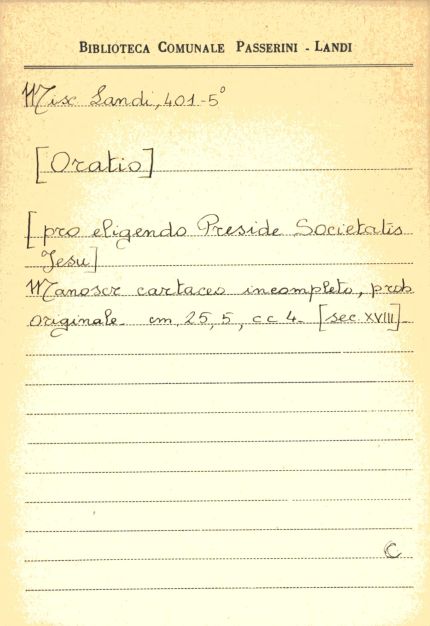 BIBLIOTECA COMUNALE PASSERINI - LANDI
Misc Landi, 401-5°
[Oratio]
[pro eligendo Preside Societatis
Jesu]
Manoscr cartaceo incompleto, prob
originale. cm 25,5, cc 4. [sec. XVIII].
C